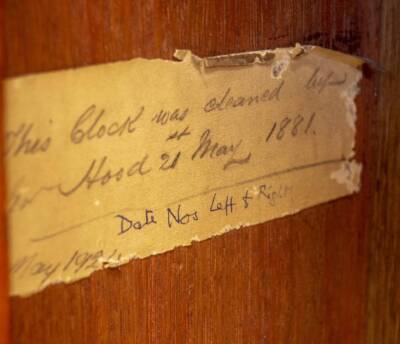 This Clock was cleaned
Hood 21st May 1881.
Date Nos Left & Right
May 192